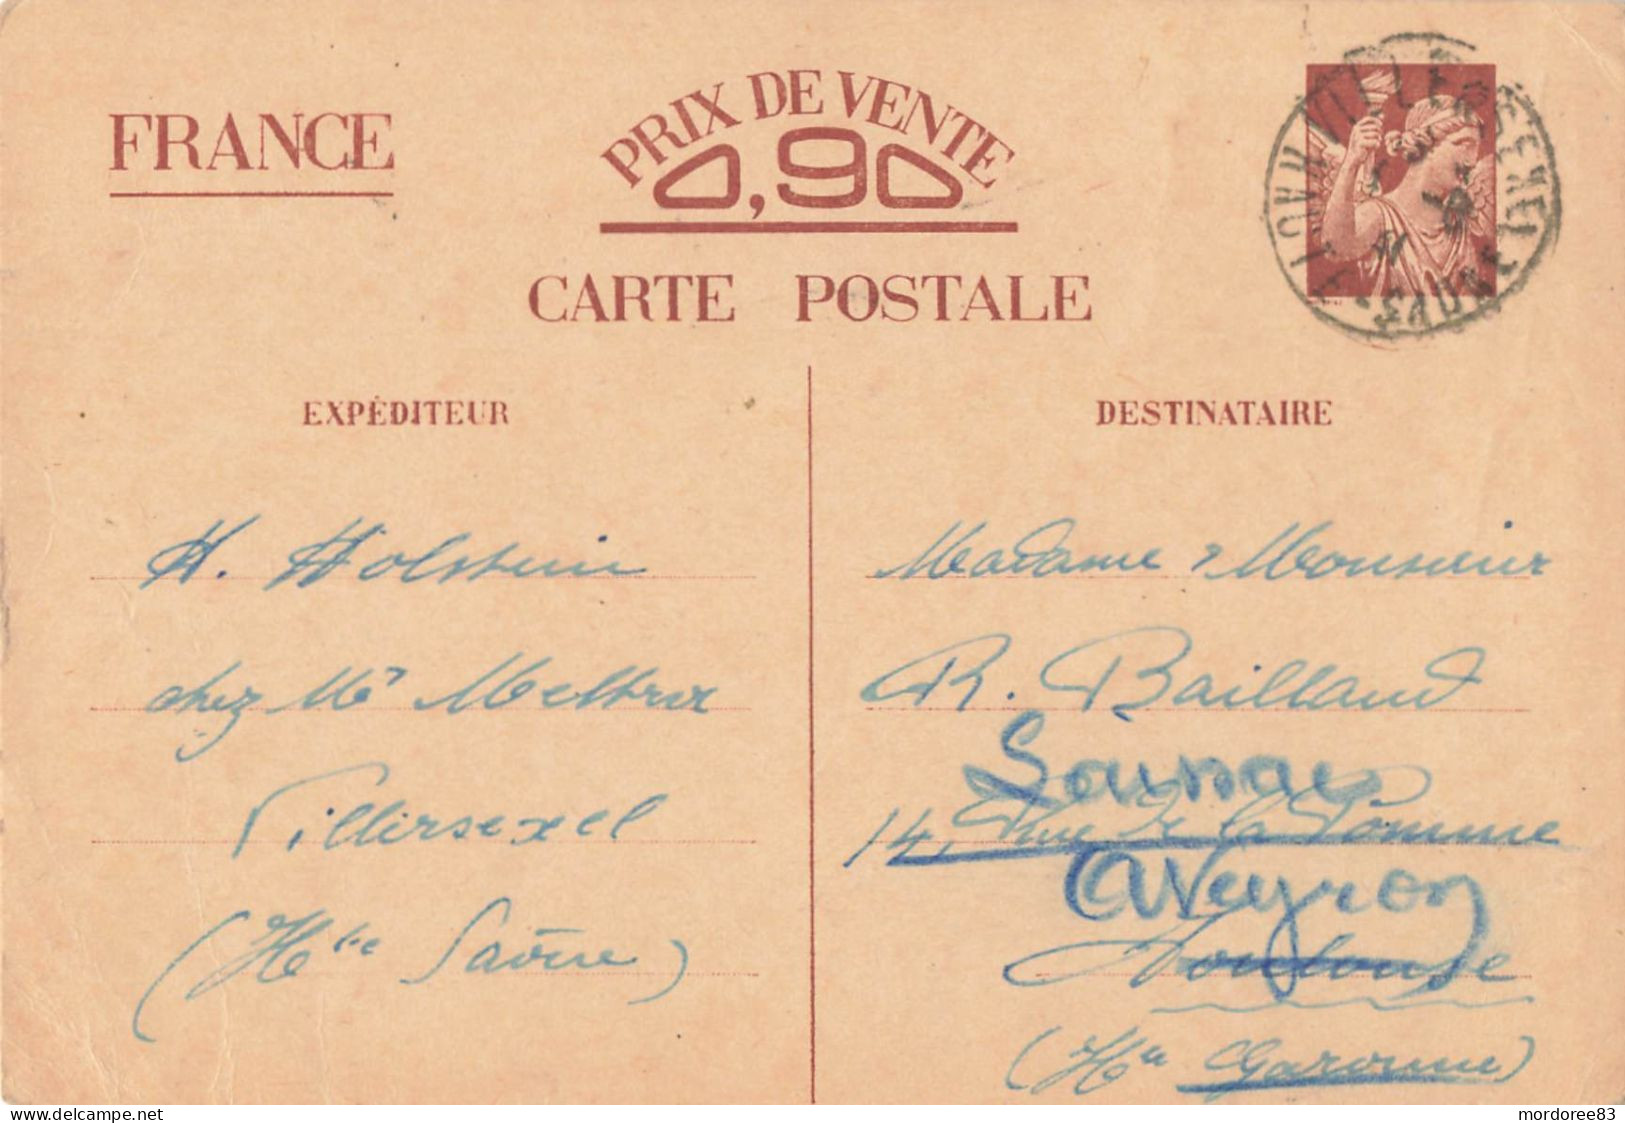 FRANCE
PRIX DE VENTE
0,90
CARTE POSTALE
EXPÉDITEUR
H. Holstein
chez Mr
Villersexel
(Hte Saône)
DESTINATAIRE
Madame & Monsieur
R. Baillaud
14, Rue de la Pomme
Aveyron
Toulouse
(Hte Garonne)
VILLERSEXEL
HAUTE-SAONE
41
mordoree83